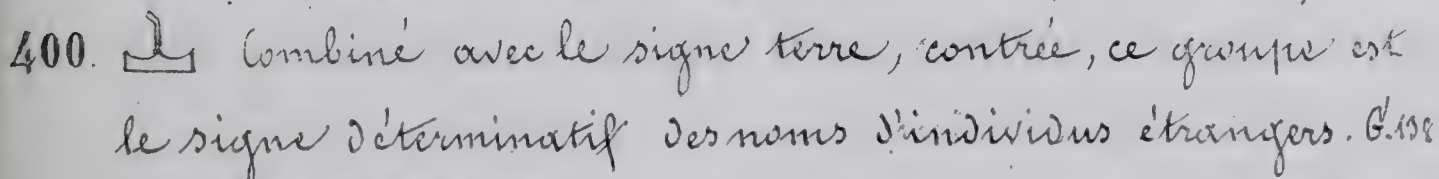 400. Combiné avec le signe terre, contrée, ce groupe est
le signe déterminatif des noms d'individus étrangers. G. 138